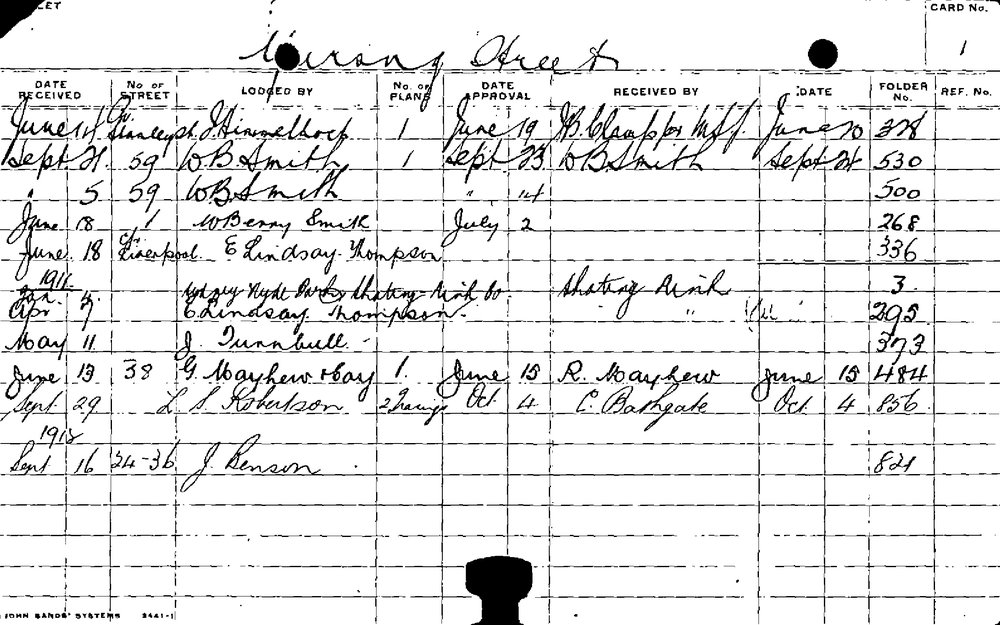 CARD No.
Yurong Street 1
DATE RECEIVED No OF STREET LODGED BY No. OF PLANS DATE APPROVAL RECEIVED BY DATE FOLDER No. REF. No.
June 14 Stanley St J. Himmelhock 1 June 19 June 20 328
Sept 21 59 W B Smith 1 Sept 23 W B Smith Sept 24 530
" 5 59 W B Smith " 14 500
June 18 1 W Berry Smith July 2 268
June 18 Liverpool E Lindsay Thompson 336
1911
Jan. 4 Sydney Hyde Park Skating Rink Co. Skating Rink 3
Apr 7 E Lindsay Thompson " " 295
May 11 J. Turnbull 373
June 13 38 G. Mayhew 1. June 15 R. Mayhew June 15 484
Sept 29 L S Robertson Oct 4 C. Bathgate Oct. 4 856
1912
Sept 16 34-36 J. Benson 821
JOHN SANDS' SYSTEMS 2441-1